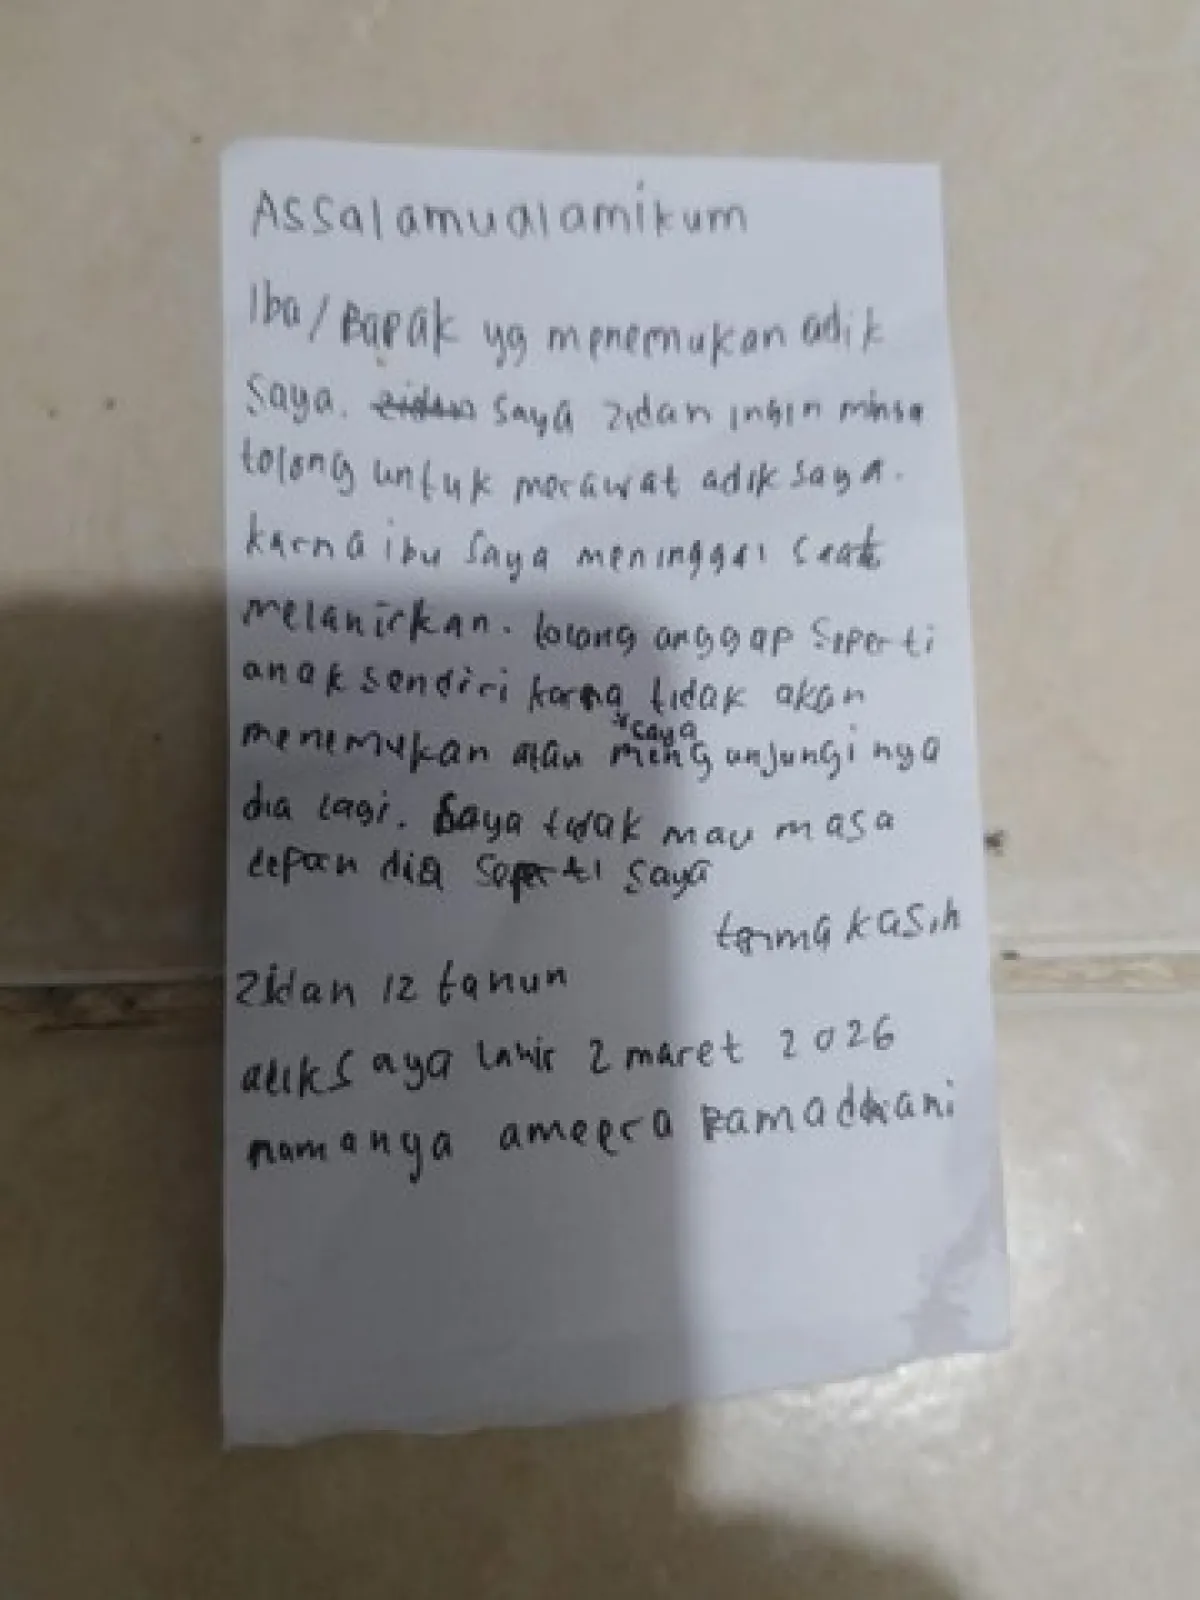 Assalamualamikum
Iba/Bapak yg menemukan adik
saya. zidan saya zidan ingin minsa
tolong untuk merawat adik saya.
karna ibu saya meninggal saat
melahirkan. tolong anggap seperti
anak sendiri karna tidak akan
*saya
menemukan atau mengunjungi nya
dia lagi. Saya tidak mau masa
depan dia seperti saya
termakasih
Zidan 12 tahun
adik saya lahir 2 maret 2026
namanya ameera Ramadhani